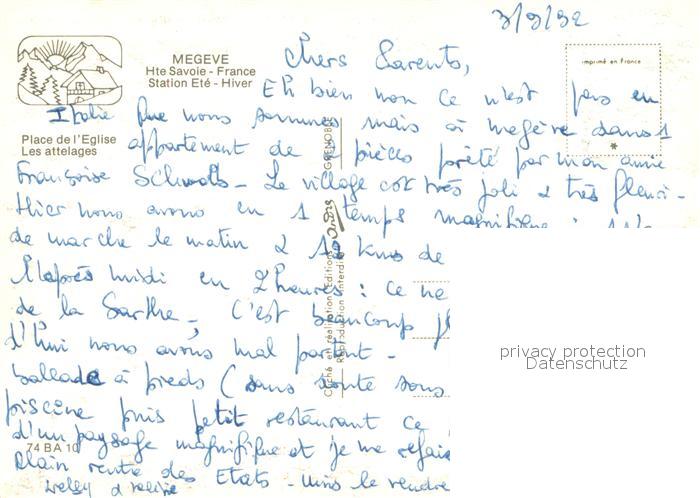 3/9/92
MEGEVE
Hte Savoie - France
Station Eté - Hiver
Place de l'Eglise
Les attelages
imprimé en France
*
Chers Parents,
Eh bien non ce n'est pas en
Italie que nous sommes mais à megève dans 1
appartement de pièces prêté par mon amie
Françoise
Le village est très joli & très fleuri -
Hier nous avons eu 1 temps magnifique :
de marche le matin & kms de
l'après midi en 2 heures : ce ne
de la Sarthe - C'est beaucoup
d'hui nous avons mal partout -
ballade à pieds ( sans doute sous
piscine puis petit restaurant ce
d'un paysage magnifique et je me refais
plain rentre des Etats - unis le vendre
GRENOBLE
Cliché et réalisation Editions André
Reproduction interdite
74 BA 10
privacy protection
Datenschutz